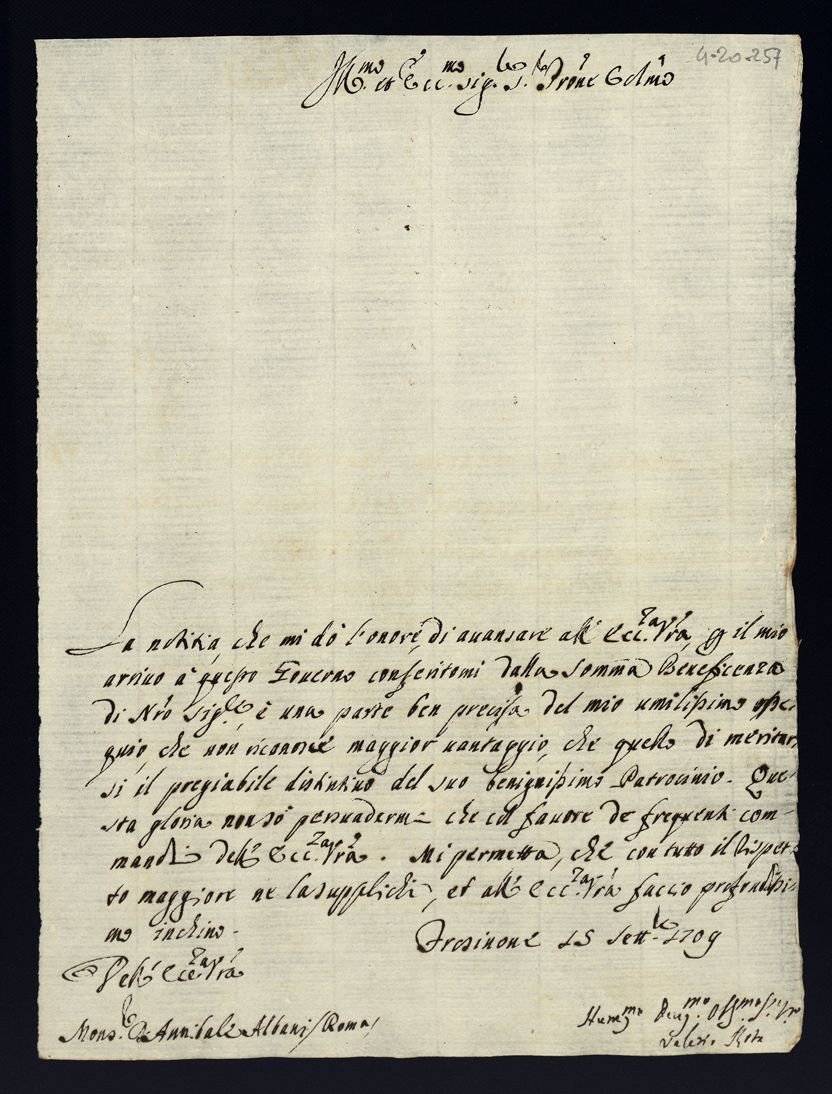 4-20-257
Ill.mo et Ecc.mo Sig.re S.r Prōne Colmō
La notitia, che mi dò l'onore, di auansare all' Ecc.za Vrā, p il mio
arriuo à questo Gouerno conferitomi dalla somma Beneficenza
di Nrō Sig.re, è una parte ben precisa del mio umilissimo osse-
quio, che non riconosce maggior uantaggio, che quello di meritar
si il pregiabile distintiuo del suo benignissimo Patrocinio. Que-
sta gloria non sò persuaderme che col fauore de frequenti com-
mandi dell' Ecc.za Vrā. Mi permetta, che con tutto il rispet-
to maggiore ne la supplichi, et all' Ecc.za Vrā faccio profondissi-
mo inchino.
Frosinone 15 Sett.re 1709
Dell' Ecc.za Vrā
Mons.re D. Annibale Albani / Roma /
Hum.mo Deu.mo Obl.mo Se.re
Valerio Rota